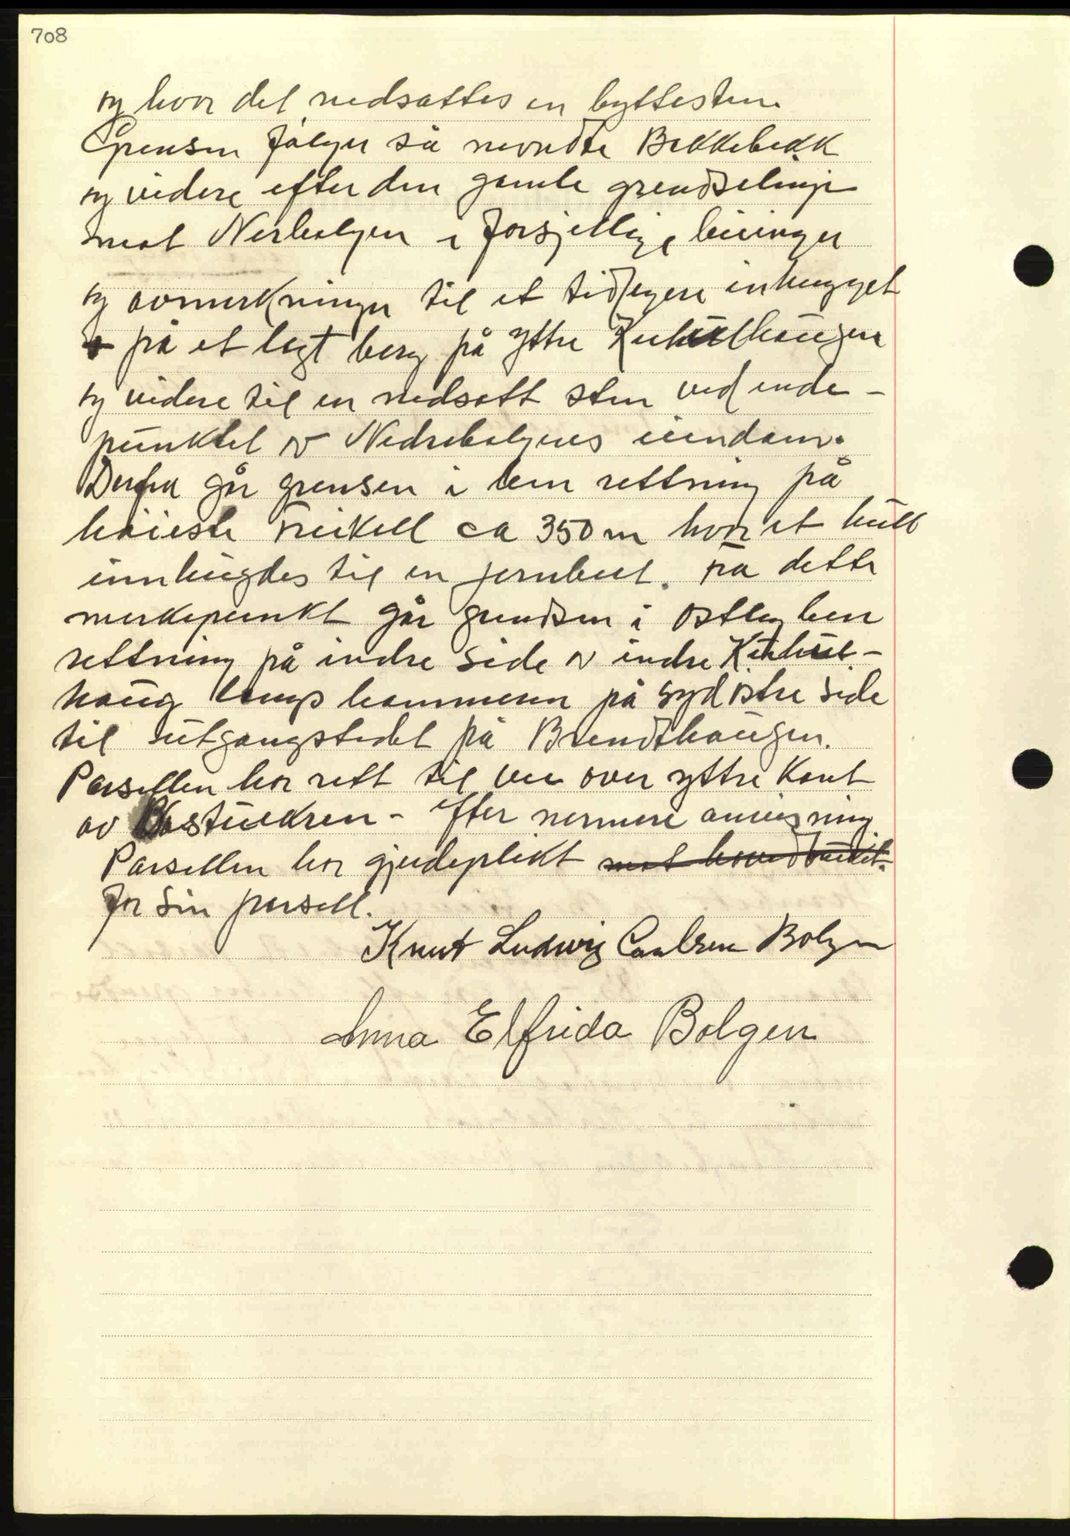 708
og hvor det nedsattes en byttesten.
Grensen følger så nevndte Bekkebekk
og videre efter den gamle grendselinje
mot Nerbolgen i forsjellige
og avmerkninger til et tidligere inhugget
+ på et lagt berg på yttre
og videre til en nedsatt sten ved ende-
punktet av Nedrebolgens eiendam.
Derfra går grensen i len rettning på
høieste Freikoll ca 350 m hvor et hull
innhugdes til en jernbolt. Fra dette
merkepunkt går grendsen i østlig len
rettning på indre side av indre
haug langs hammeren på sydøstre side
til utgangstedet på Brendthaugen.
Parsellen har rett til vei over yttre Kant
av - efter nermere anvisning
Parsellen har gjerdeplikt
for sin parsell.
Knut Ludvig Carlsen Bolgen
Anna Elfrida Bolgen